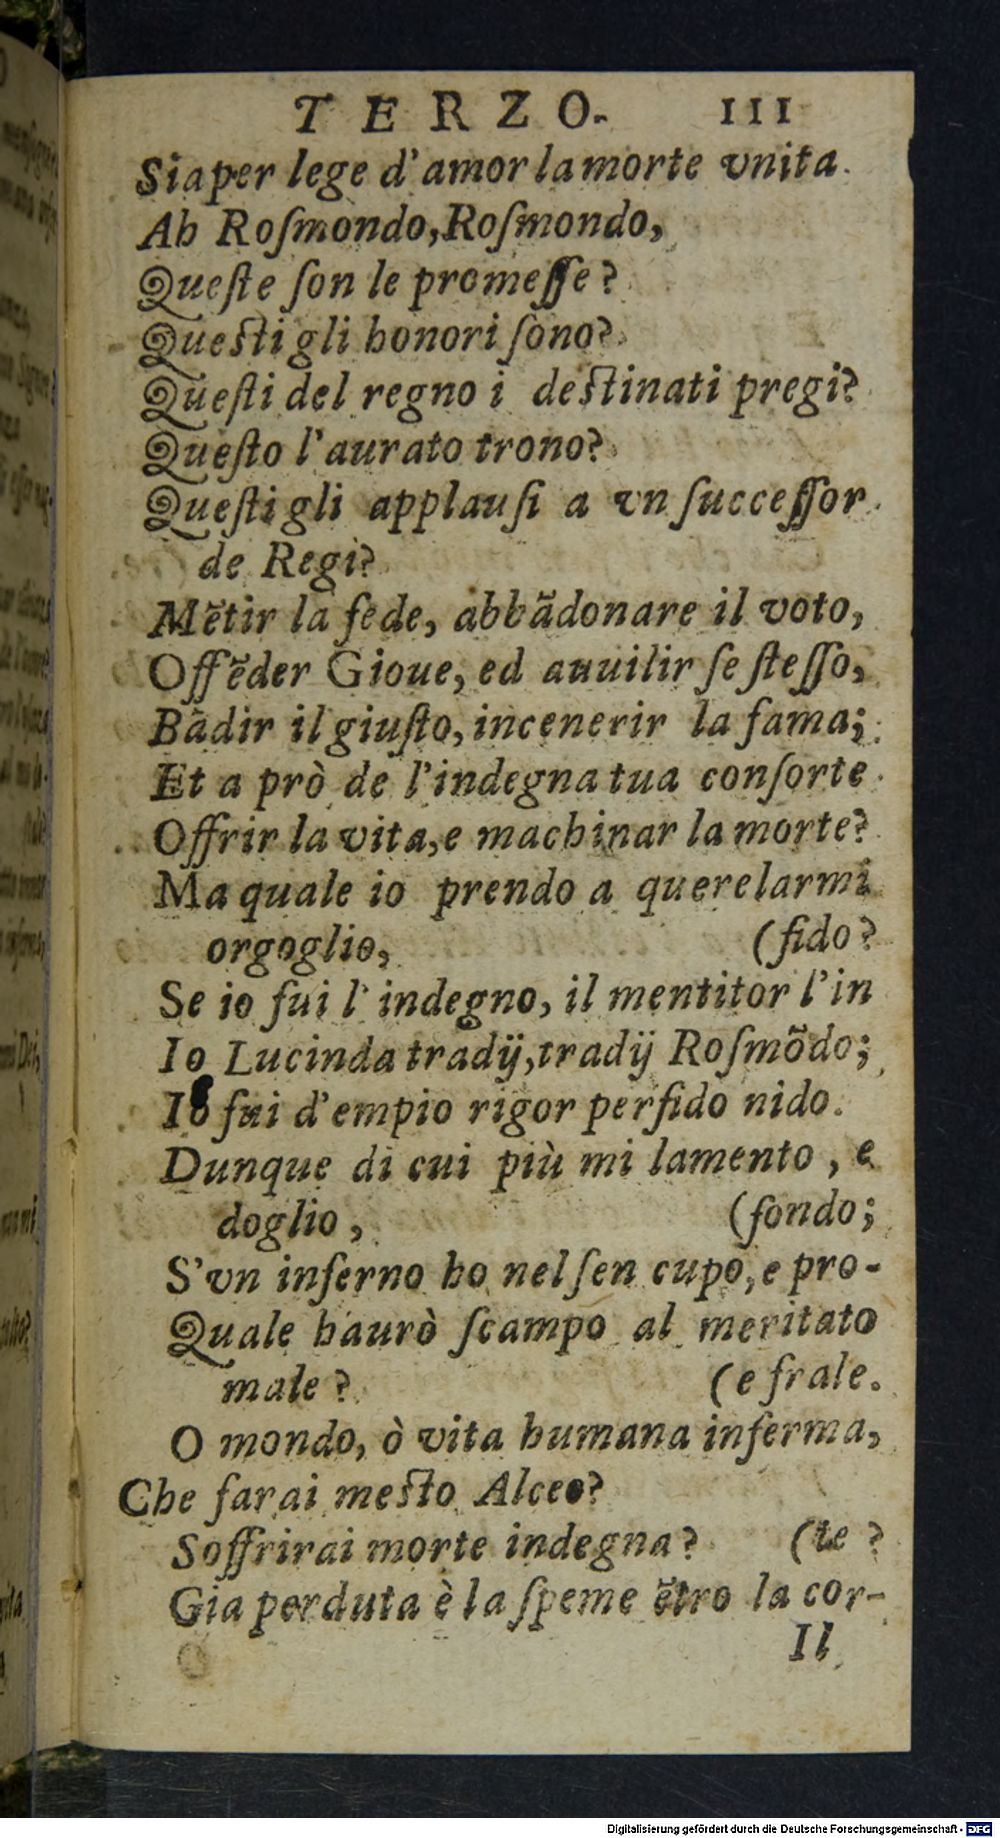 TERZO. III
Sia per lege d'amor la morte vnita.
Ah Roſmondo, Roſmondo,
Queſte ſon le promeſſe?
Queſti gli honori ſono?
Queſti del regno i deſtinati pregi?
Queſto l'aurato trono?
Queſti gli applauſi a vn ſucceſſor
de Regi?
Mẽtir la fede, abbãdonare il voto,
Offẽder Gioue, ed auuilir ſe ſteſſo,
Bãdir il giuſto, incenerir la fama;
Et a prò de l'indegna tua conſorte
Offrir la vita, e machinar la morte?
Ma quale io prendo a querelarmi
orgoglio, (fido?
Se io fui l'indegno, il mentitor l'in
Io Lucinda tradij, tradij Roſmõdo;
Io fui d'empio rigor perfido nido.
Dunque di cui più mi lamento, e
doglio, (fondo;
S'vn inferno ho nel ſen cupo, e pro-
Quale haurò ſcampo al meritato
male? (e frale.
O mondo, ò vita humana inferma,
Che farai meſto Alceo?
Soffrirai morte indegna? (te?
Gia perduta è la ſpeme ẽtro la cor-
Il
Digitalisierung gefördert durch die Deutsche Forschungsgemeinschaft - DFG